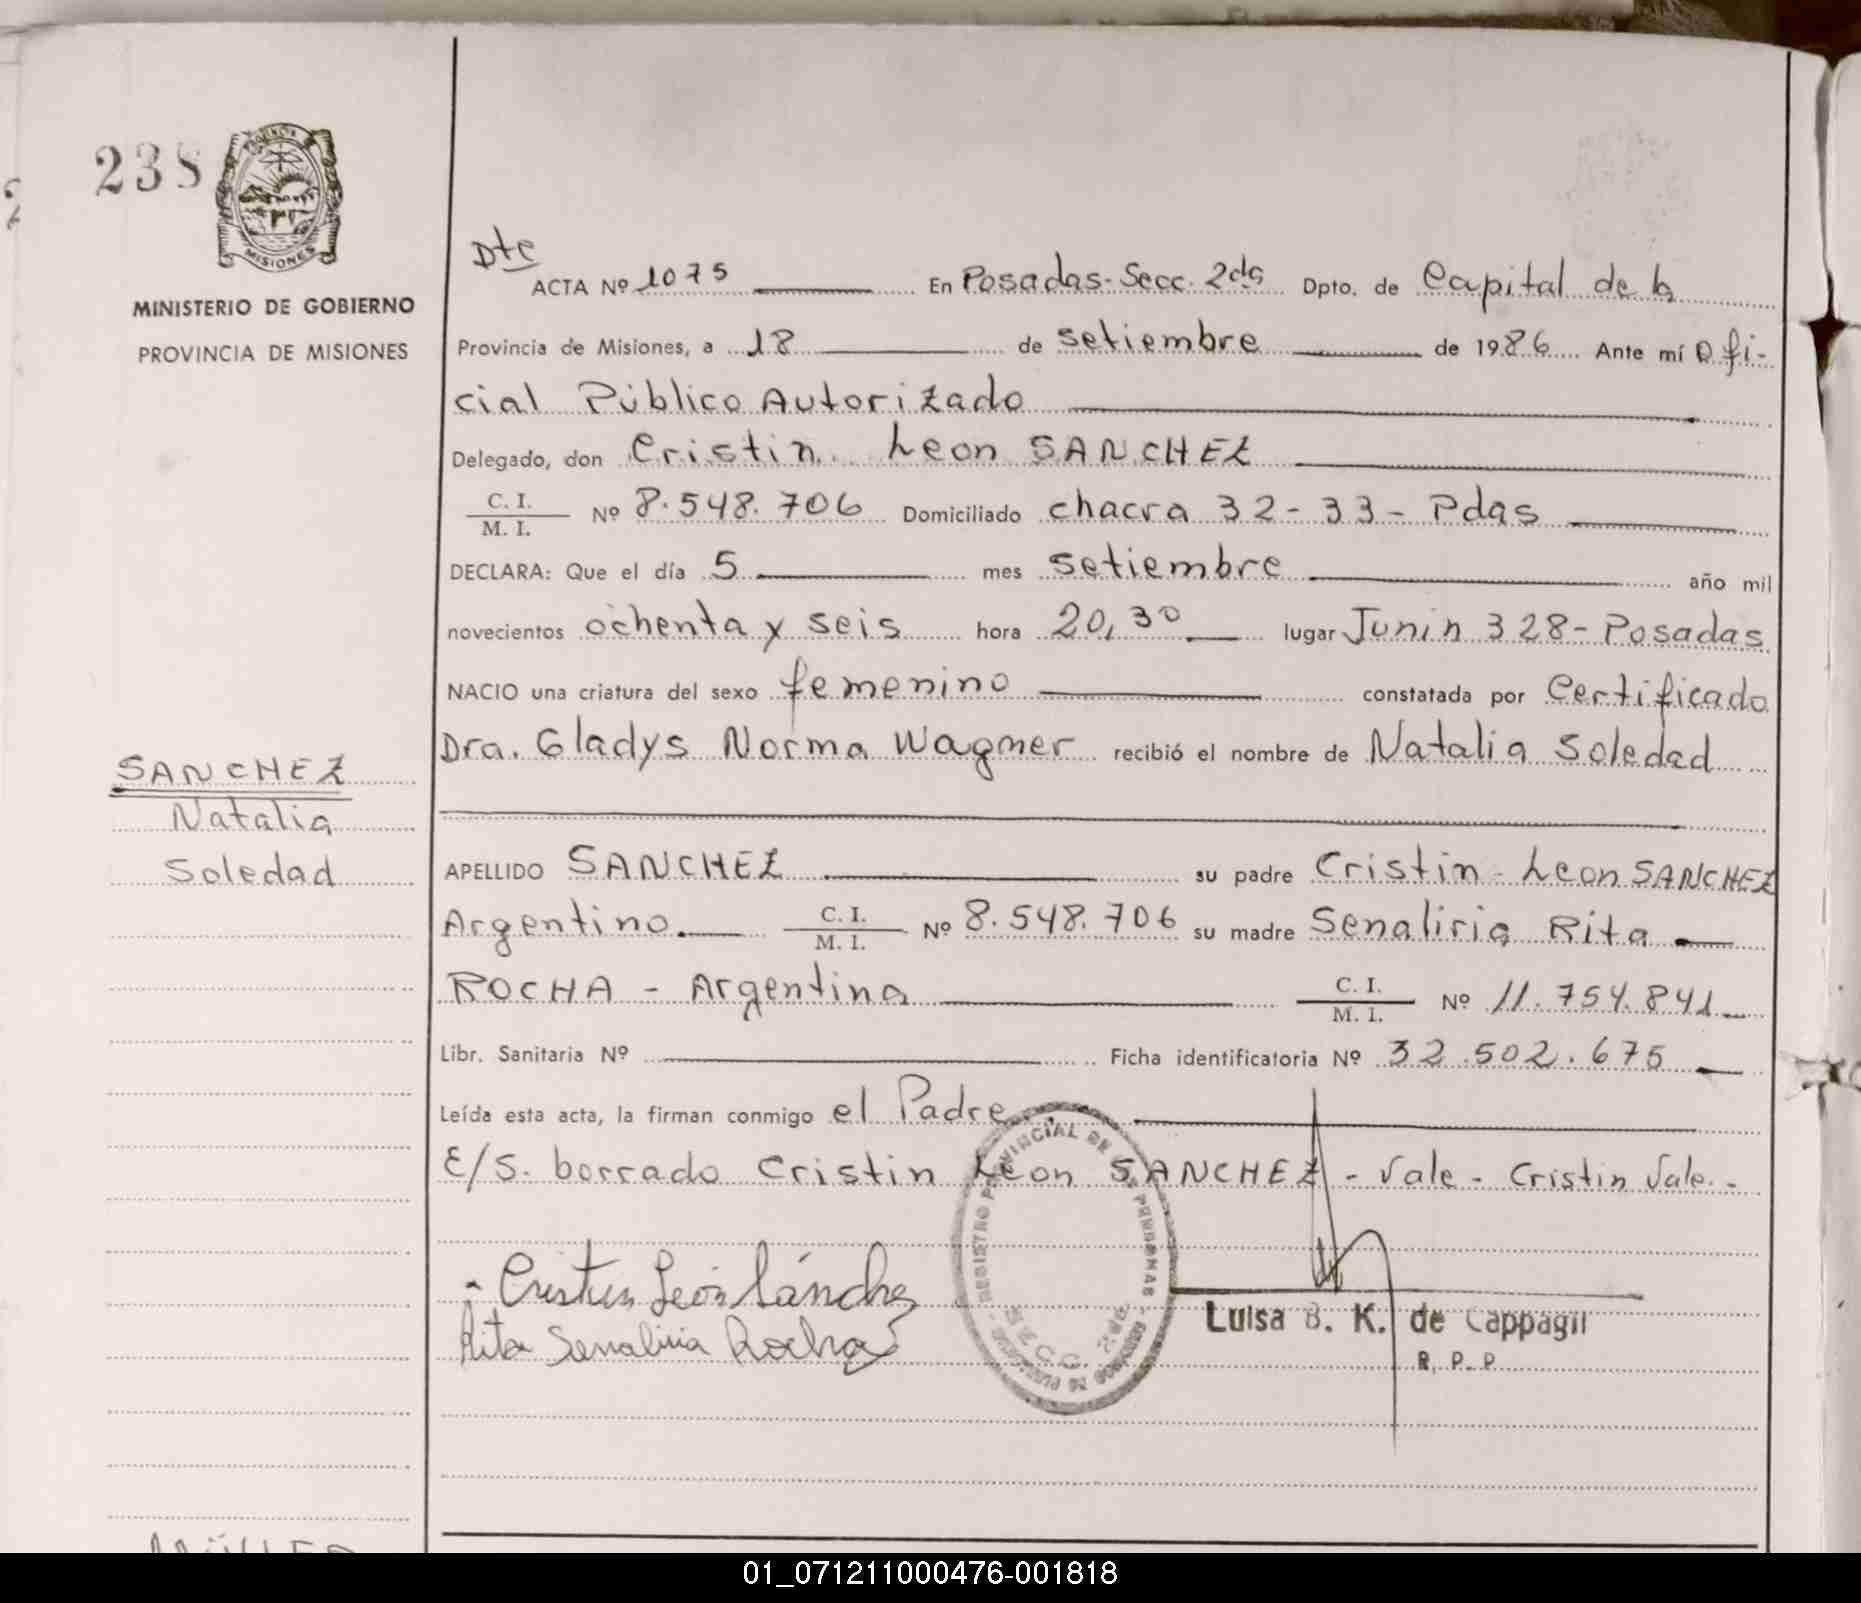 238
PROVINCIA
MISIONES
MINISTERIO DE GOBIERNO
PROVINCIA DE MISIONES
Dte
ACTA Nº 1075 En Posadas-Secc. 2da Dpto. de Capital de la
Provincia de Misiones, a 18 de setiembre de 1986 Ante mí Ofi-
cial Público Autorizado
Delegado, don Cristin Leon SANCHEZ
C. I.
M. I. Nº 8.548.706 Domiciliado chacra 32-33-Pdas
DECLARA: Que el día 5 mes setiembre año mil
novecientos ochenta y seis hora 20,30 lugar Junin 328-Posadas
NACIO una criatura del sexo femenino constatada por Certificado
Dra. Gladys Norma Wagner recibió el nombre de Natalia Soledad
SANCHEZ
Natalia
Soledad
APELLIDO SANCHEZ su padre Cristin-Leon SANCHEZ
Argentino. C. I.
M. I. Nº 8.548.706 su madre Senaliria Rita
ROCHA - Argentina C. I.
M. I. Nº 11.754.841
Libr. Sanitaria Nº Ficha identificatoria Nº 32.502.675
Leída esta acta, la firman conmigo el Padre
E/S. borrado Cristin Leon SANCHEZ - Vale - Cristin Vale.-
Cristin León Sánchez
Rita Senaliria Rocha
REGISTRO PROVINCIAL DE LAS PERSONAS
SECC. 2da.
Luisa B. K. de Cappagli
R. P. P.
01_071211000476-001818